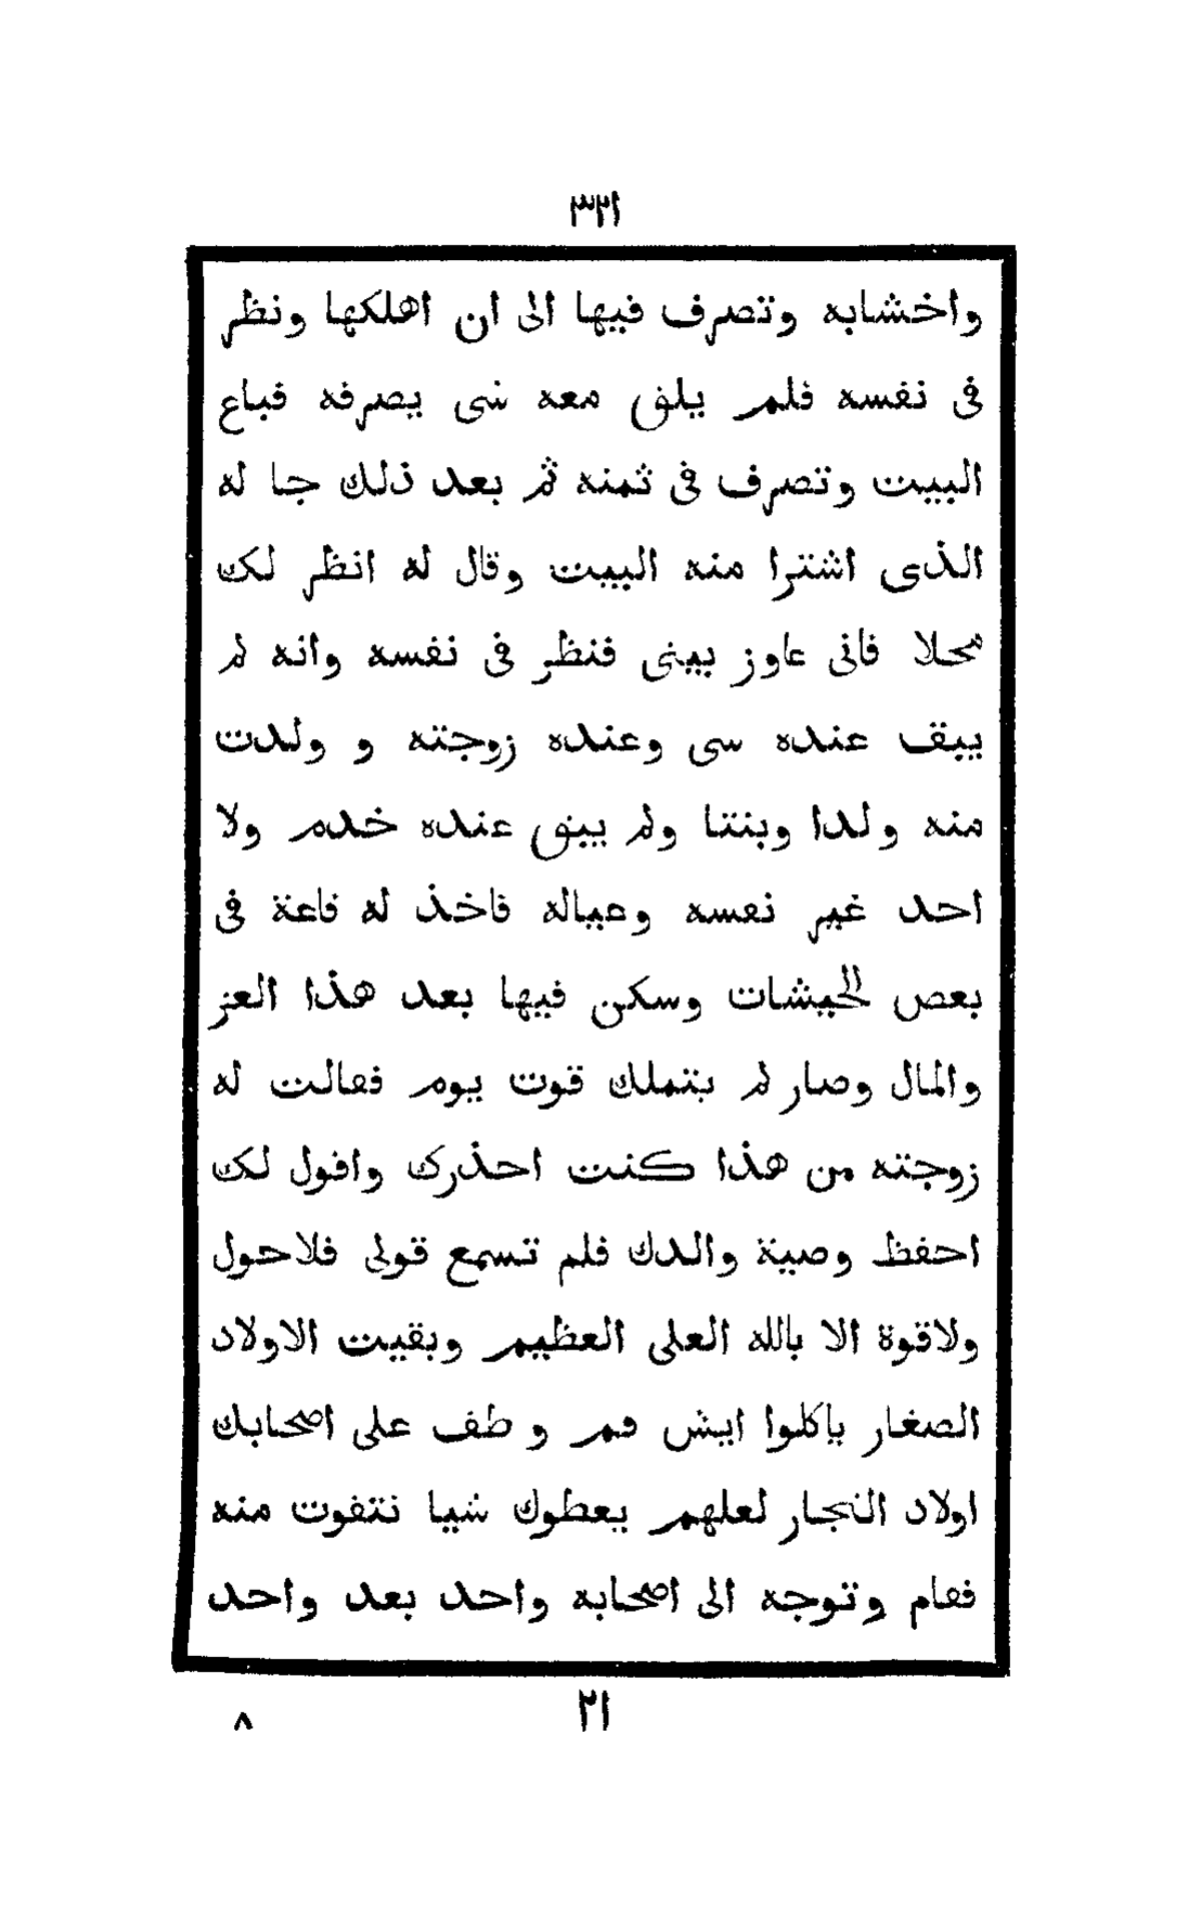 ٣٢١
واخشابه وتصرف فيها الى ان اهلكها ونظر
فى نفسه فلم يلق معه شى يصرفه فباع
البيت وتصرف فى ثمنه ثم بعد ذلك جا له
الذى اشترا منه البيت وقال له انظر لك
محلا فانى عاوز بيتى فنظر فى نفسه وانه لم
يبق عنده سى وعنده زوجته و ولدت
منه ولدا وبنتا ولم يبق عنده خدم ولا
احد غير نفسه وعياله فاخذ له قاعة فى
بعض الحيشات وسكن فيها بعد هذا العز
والمال وصار لم يتملك قوت يوم فقالت له
زوجته من هذا كنت احذرك واقول لك
احفظ وصية والدك فلم تسمع قولى فلاحول
ولاقوة الا بالله العلى العظيم وبقيت الاولاد
الصغار ياكلوا ايش قم و طف على اصحابك
اولاد التجار لعلهم يعطوك شيا نتقوت منه
فقام وتوجه الى اصحابه واحد بعد واحد
٢١
٨